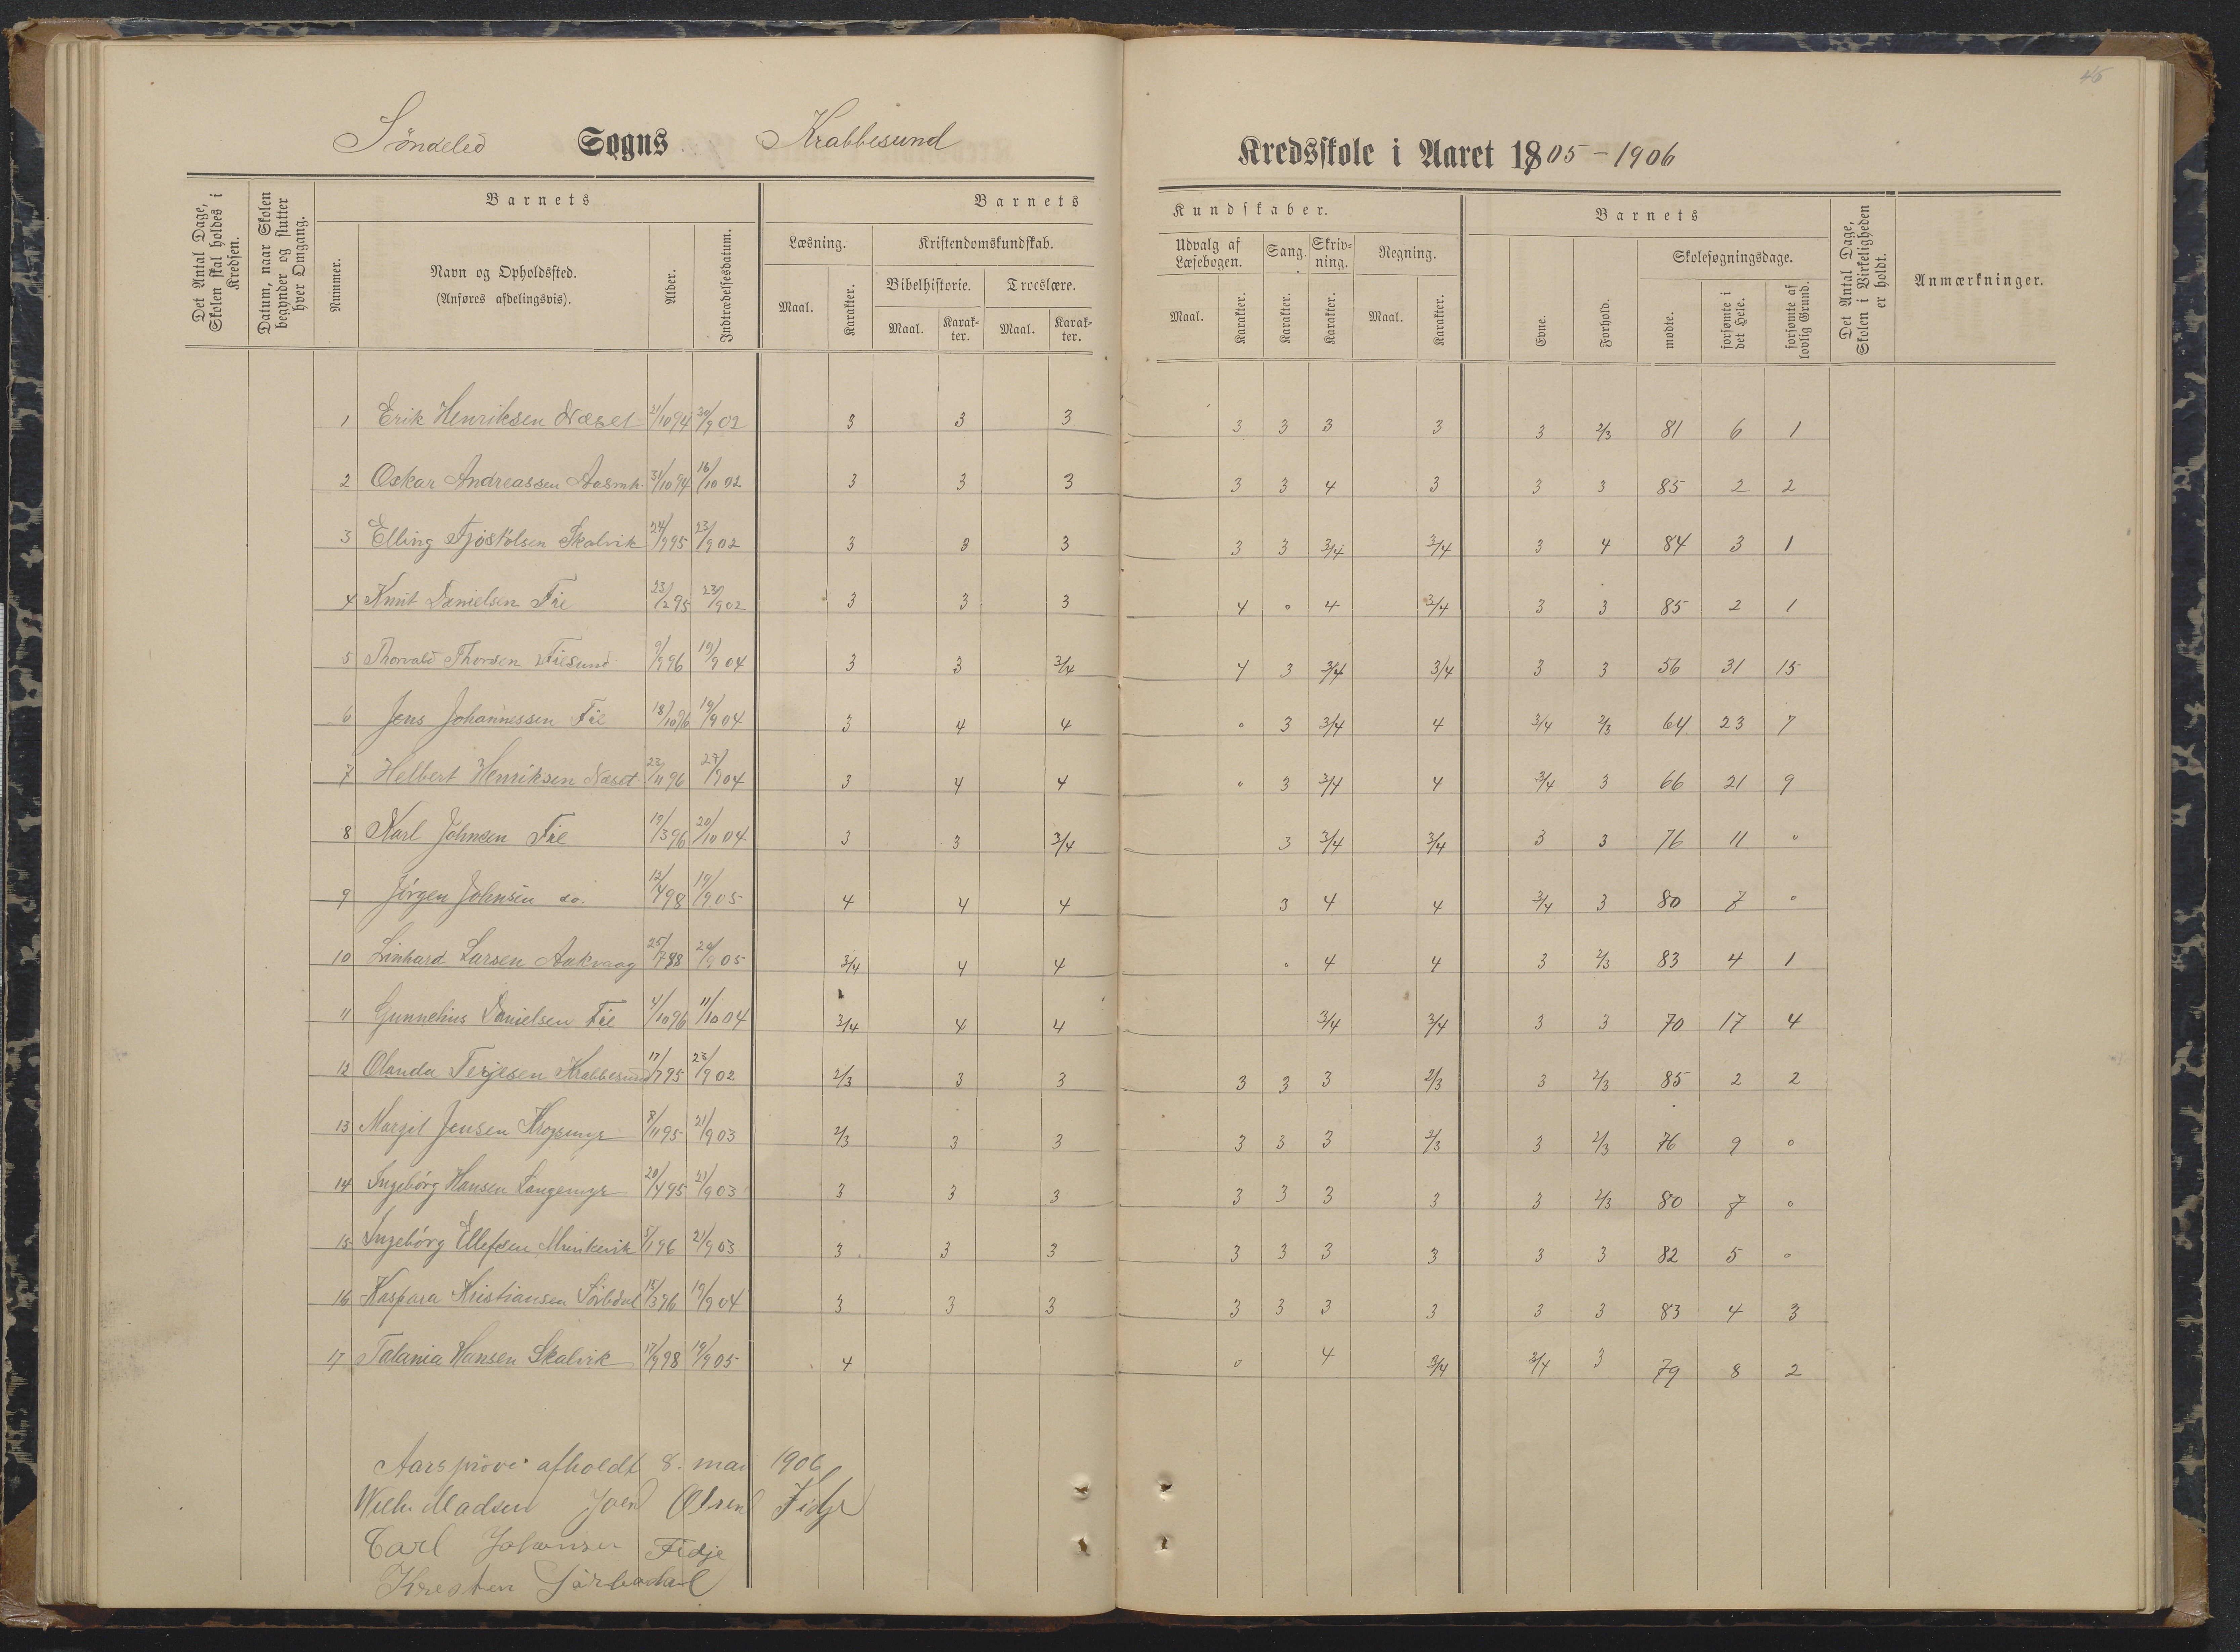 45
Söndeled Sogns Krabbesund Kredsskole i Aaret 1805-1906
Det Antal Dage, Skolen skal holdes i Kredsen.
Datum, naar Skolen begynder og slutter hver Omgang.
Barnets
Nummer.
Navn og Opholdssted.
(Anføres afdelingsvis).
Alder.
Indtrædelsesdatum.
Barnets Kundskaber.
Læsning.
Maal. Karakter.
Kristendomskundskab.
Bibelhistorie. Troeslære.
Maal. Karakter. Maal. Karakter.
Udvalg af Læsebogen.
Maal. Karakter.
Sang.
Karakter.
Skrivning.
Karakter.
Regning.
Maal. Karakter.
Barnets
Evne.
Forhold.
Skolesøgningsdage.
mødte.
forsømte i det Hele.
forsømte af lovlig Grund.
Det Antal Dage, Skolen i Virkeligheden er holdt.
Anmærkninger.
1 Erik Henriksen Næset 21/10 94 30/9 02 3 3 3 3 3 3 3 3 2/3 81 6 1
2 Oskar Andreassen Aasmk. 31/10 94 16/10 02 3 3 3 3 3 4 3 3 3 85 2 2
3 Elling Fjöstölsen Skalvik 24/9 95 23/9 02 3 3 3 3 3 3/4 3/4 3 4 84 3 1
4 Knut Danielsen Fie 23/2 95 23/9 02 3 3 3 4 0 4 3/4 3 3 85 2 1
5 Thorvald Thorsen Fiesund 9/9 96 19/9 04 3 3 3/4 4 3 3/4 3/4 3 3 56 31 15
6 Jens Johannessen Fie 18/10 96 19/9 04 3 4 4 0 3 3/4 4 3/4 2/3 64 23 7
7 Helbert Henriksen Næset 23/11 96 27/9 04 3 4 4 0 3 3/4 4 3/4 3 66 21 9
8 Karl Johnsen Fie 19/3 96 20/10 04 3 3 3/4 3 3/4 3/4 3 3 76 11 0
9 Jörgen Johnsen do. 12/4 98 19/9 05 4 4 4 3 4 4 3/4 3 80 7 0
10 Linhard Larsen Aakvaag 25/7 98 20/9 05 3/4 4 4 0 4 4 3 2/3 83 4 1
11 Gunnelius Danielsen Fie 4/10 96 11/10 04 3/4 4 4 3/4 3/4 3 3 70 17 4
12 Olanda Terjesen Krabbesund 17/7 95 23/9 02 2/3 3 3 3 3 3 2/3 3 2/3 85 2 2
13 Margit Jensen Krogsmyr 8/11 95 21/9 03 2/3 3 3 3 3 3 2/3 3 2/3 76 9 0
14 Ingebörg Hansen Langemyr 20/4 95 21/9 03 3 3 3 3 3 3 3 3 2/3 80 7 0
15 Ingebörg Ellefsen Munkevik 5/1 96 21/9 03 3 3 3 3 3 3 3 3 3 82 5 0
16 Kaspara Kristiansen Sörbdal 15/3 96 19/9 04 3 3 3 3 3 3 3 3 3 83 4 3
17 Talania Hansen Skalvik 17/9 98 19/9 05 4 0 4 3/4 3/4 3 79 8 2
Aarsprøve afholdt 8. mai 1906
Wilh. Madsen Joen Olsen Fidje
Carl Johansen Fidje
Kresten Sörbödal